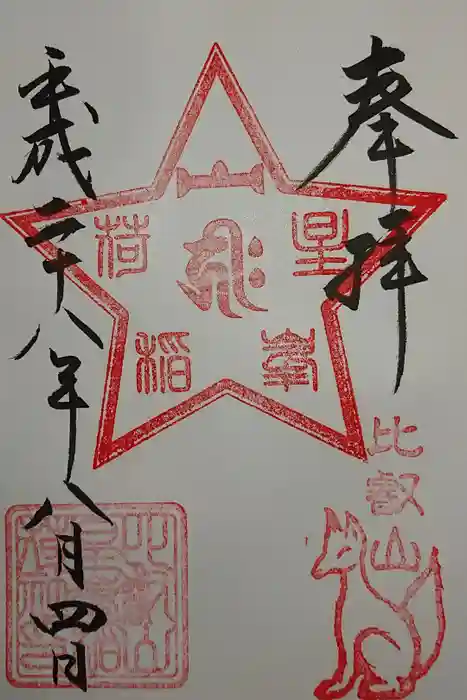 奉拝
比叡山
星
峯
稲
荷
平成二十八年八月四日